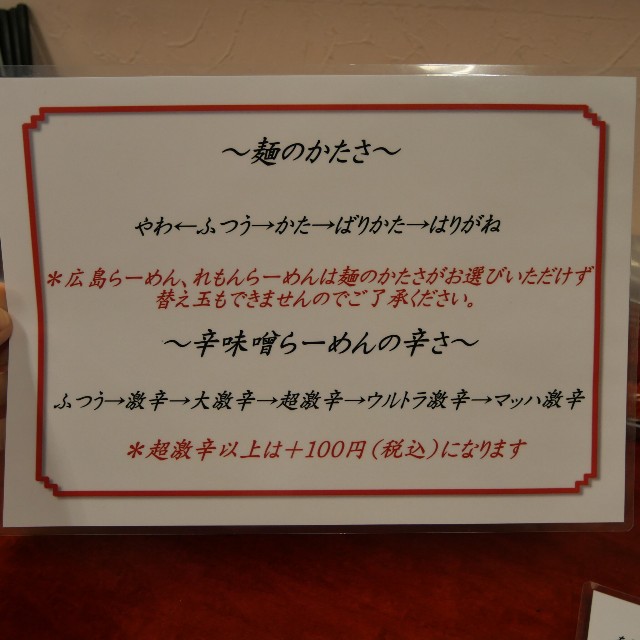 ～麺のかたさ～
やわ←ふつう→かた→ばりかた→はりがね
＊広島らーめん、れもんらーめんは麺のかたさがお選びいただけず
替え玉もできませんのでご了承ください。
～辛味噌らーめんの辛さ～
ふつう→激辛→大激辛→超激辛→ウルトラ激辛→マッハ激辛
＊超激辛以上は＋100円（税込）になります